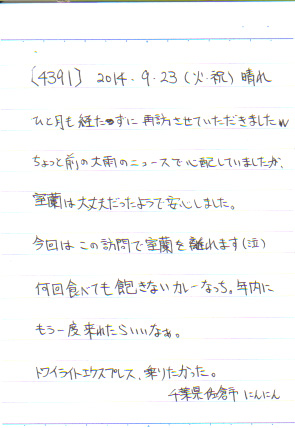 [4391] 2014.9.23 (火・祝) 晴れ
ひと月も経たずに再訪させていただきましたw
ちょっと前の大雨のニュースで心配していましたが、
室蘭は大丈夫だったようで安心しました。
今回はこの訪問で室蘭を離れます(泣)
何回食べても飽きないカレーなっち。年内に
もう一度来れたらいいなぁ。
トワイライトエクスプレス、乗りたかった。
千葉県佐倉市 にんにん